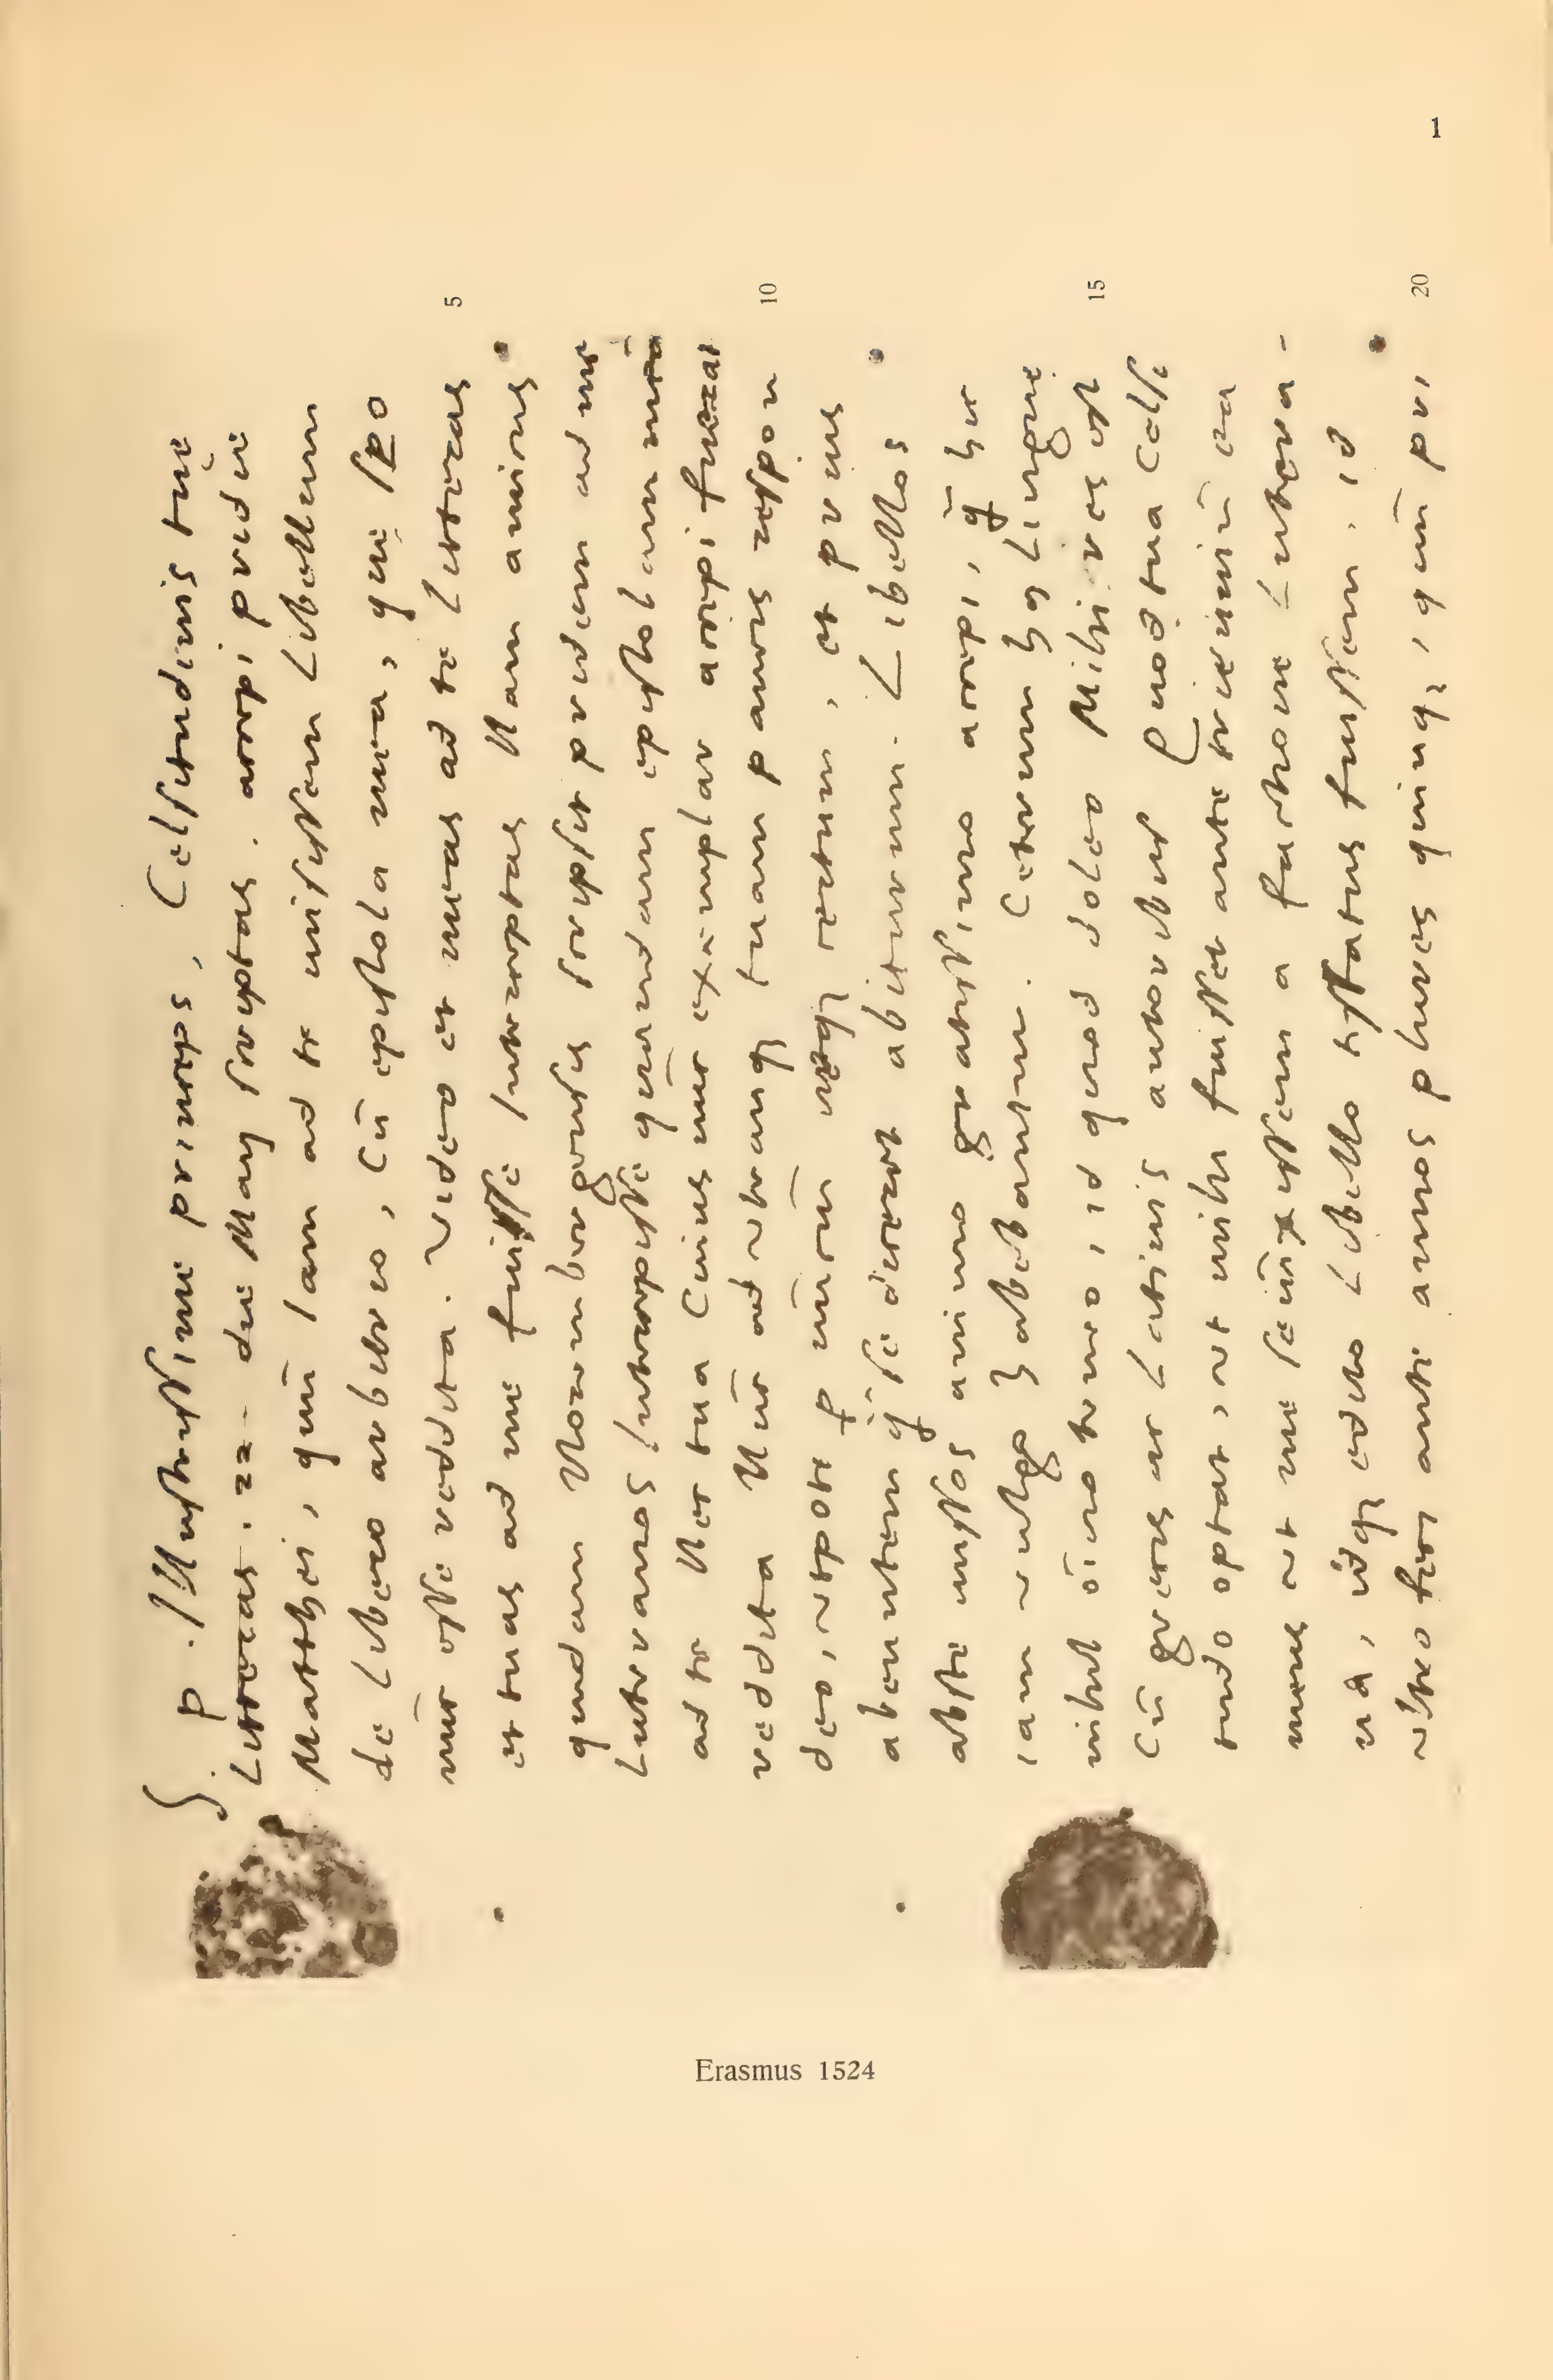 S. p. Illustrissime princeps, Celsitudinis tuę
litteras .22. die Maij scriptas. accepi pridie
Matthei, quū iam ad te misissem libellum
de libero arbitrio, cū epistola mea, quę spo
nūc esse reddita. Video et meas ad te litteras
et tuas ad me fuisse interceptas Nam amicus
quidam Norembergensis scripsit pridem ad me
Luteranos intercepisse quandam epistolam meā
ad te Nec tua cuius nūc exemplar accepi fuerat
reddita Nūc ad utranq; tuam paucis respon
deo, utpote p nūciū neq; certum, et prius
abeuntem q̄ se dixerat abiturum. Libellos
abs te missos animo gratissimo accepi, q̄ hic
iam vulgo habebantur. Ceterum linguę
nihil oīno teneo, id quod doleo Mihi res est
cū grecis ac latinis autoribus Quod tua celsi
tudo optat, ut mihi fuisset ante trienniū ea
mens ut me seiūxissem a factione lutera-
na, idq; edito libello testatus fuissem. id
ultro feci ante annos plures quinq;, quū pri,
5
10
15
20
Erasmus 1524
1